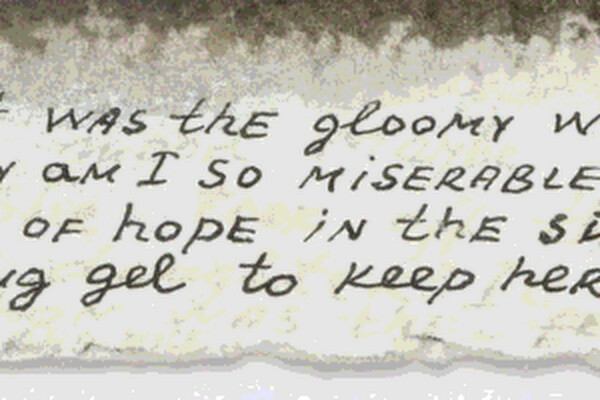 was the gloomy
am I so miserable
of hope in the
gel to keep her